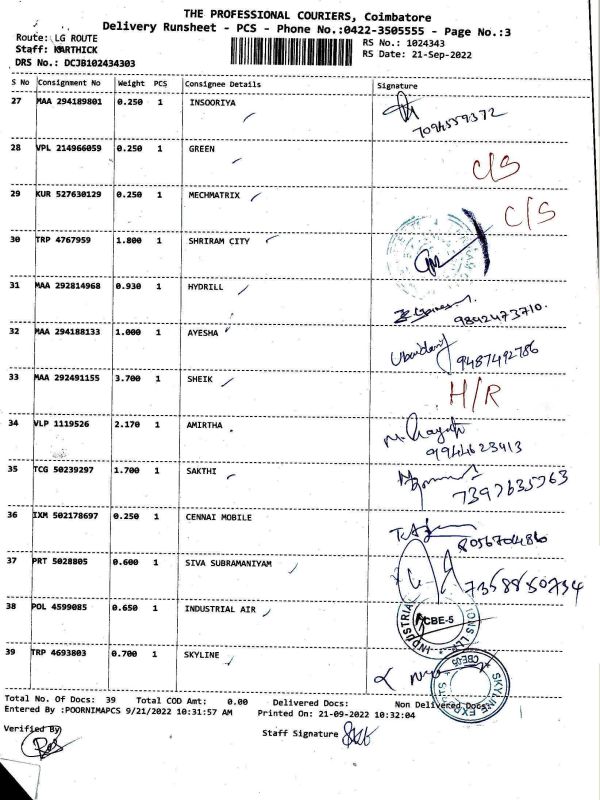 THE PROFESSIONAL COURIERS, Coimbatore
Delivery Runsheet - PCS - Phone No.:0422-3505555 - Page No.:3
Route: LG ROUTE
Staff: KARTHICK
DRS No.: DCJB102434303
RS No.: 1024343
RS Date: 21-Sep-2022
S No Consignment No Weight PCS Consignee Details Signature
27 MAA 294189801 0.250 1 INSOORIYA
28 VPL 214966059 0.250 1 GREEN C/S
29 KUR 527630129 0.250 1 MECHMATRIX C/S
30 TRP 4767959 1.800 1 SHRIRAM CITY
31 MAA 292814968 0.930 1 HYDRILL 9842473710.
32 MAA 294188133 1.000 1 AYESHA 9487492786
33 MAA 292491155 3.700 1 SHEIK H/R
34 VLP 1119526 2.170 1 AMIRTHA 9944623413
35 TCG 50239297 1.700 1 SAKTHI
36 IXM 502178697 0.250 1 CENNAI MOBILE 8056704860
37 PRT 5028805 0.600 1 SIVA SUBRAMANIYAM 7358850734
38 POL 4599085 0.650 1 INDUSTRIAL AIR INDUSTRIAL CBE-5
39 TRP 4693803 0.700 1 SKYLINE SKYLINE EXPORTS CBE-05
Total No. Of Docs: 39 Total COD Amt: 0.00 Delivered Docs: Non Delivered Docs:
Entered By :POORNIMAPCS 9/21/2022 10:31:57 AM Printed On: 21-09-2022 10:32:04
Verified By
Staff Signature